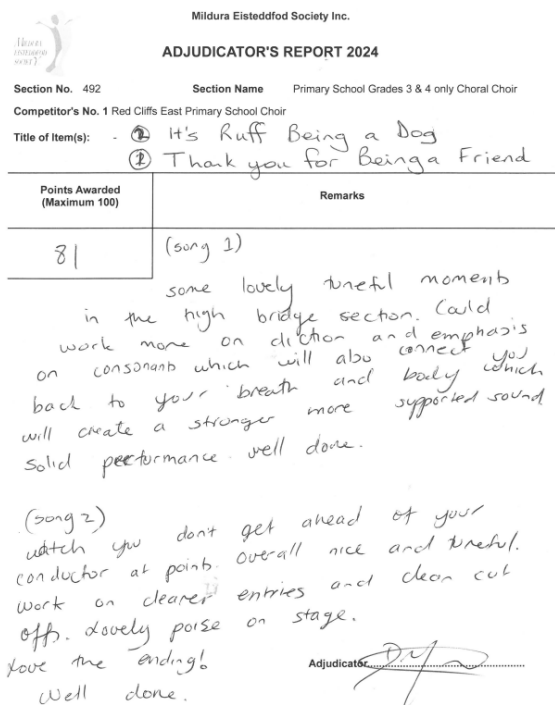 Mildura Eisteddfod Society Inc.
MILDURA
EISTEDDFOD
SOCIETY
ADJUDICATOR'S REPORT 2024
Section No. 492 Section Name Primary School Grades 3 & 4 only Choral Choir
Competitor's No. 1 Red Cliffs East Primary School Choir
Title of Item(s): - ② It's Ruff Being a Dog
① Thank you for Being a Friend
Points Awarded
(Maximum 100)
Remarks
81
(song 1)
some lovely tuneful moments
in the high bridge section. Could
work more on diction and emphasis
on consonants which will also connect you
back to your breath and body which
will create a stronger more supported sound
solid performance. well done.
(song 2)
watch you don't get ahead of your
conductor at points. Overall nice and tuneful.
work on clearer entries and clean cut
offs. Lovely poise on stage.
Love the ending!
Well done.
Adjudicator